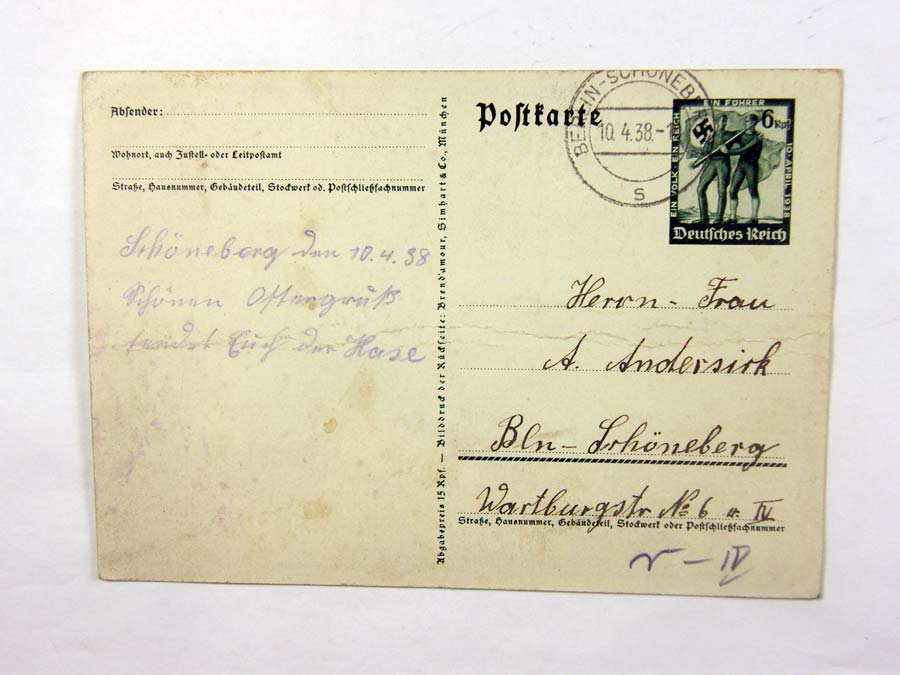 Absender:
Wohnort, auch Zustell- oder Leitpostamt
Straße, Hausnummer, Gebäudeteil, Stockwerk od. Postschließfachnummer
Schöneberg den 10.4.38
Schönen Ostergruß
sendet Euch der Hase
Abgabepreis 15 Rpf. — Bilddruck der Rückseite: Brend'amour, Simhart & Co., München
Postkarte
BERLIN-SCHÖNEB
10.4.38-1
S
EIN VOLK · EIN REICH
EIN FÜHRER
10. APRIL 1938
6 Rpf
Deutsches Reich
Herrn - Frau
A. Andersirk
Bln- Schöneberg
Wartburgstr No 6 IV
Straße, Hausnummer, Gebäudeteil, Stockwerk oder Postschließfachnummer
- IV